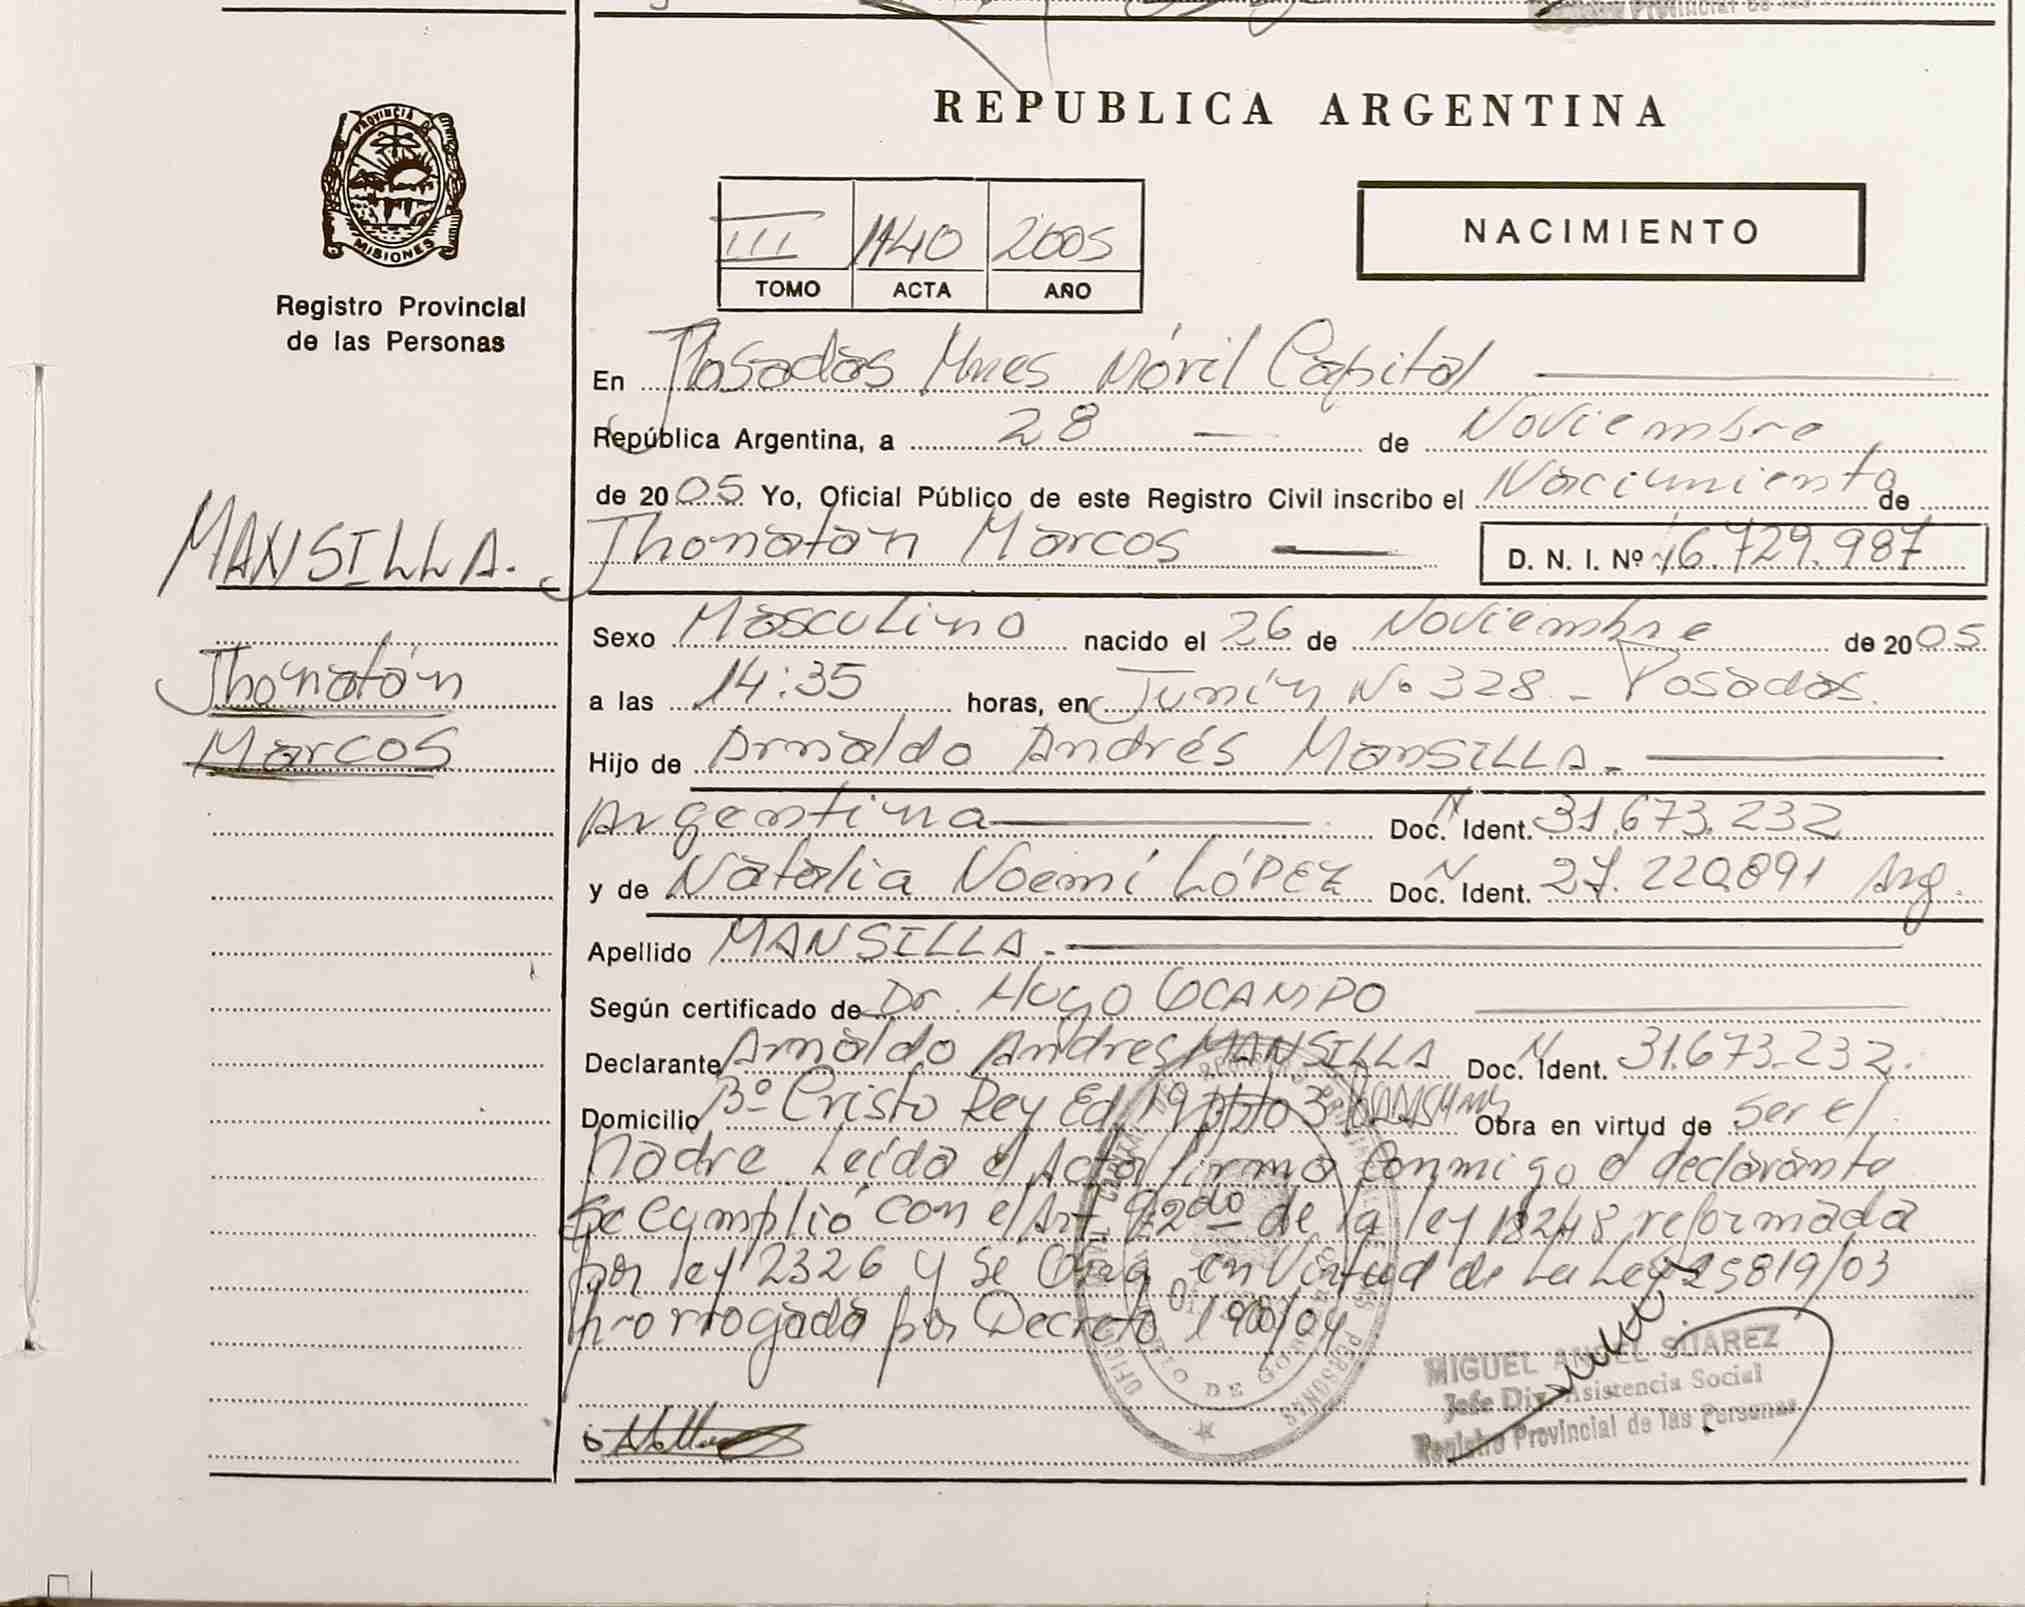 REPUBLICA ARGENTINA
PROVINCIA DE
MISIONES
Registro Provincial
de las Personas
III 1140 2005
TOMO ACTA AÑO
NACIMIENTO
En Posadas Mnes Móvil Capital
República Argentina, a 28 de Noviembre
de 2005 Yo, Oficial Público de este Registro Civil inscribo el Nacimiento de
Jhonatan Marcos D. N. I. Nº 46.729.987
MANSILLA.
Jhonatan
Marcos
Sexo Masculino nacido el 26 de Noviembre de 2005
a las 14:35 horas, en Junín Nº 328 - Posadas.
Hijo de Arnaldo Andrés MANSILLA -
Argentina Doc. N Ident. 31.673.232
y de Natalia Noemí LÓPEZ Doc. N Ident. 27.220.891 Arg.
Apellido MANSILLA.-
Según certificado de Dr. Hugo OCAMPO
Declarante Arnaldo Andres MANSILLA Doc. N Ident. 31.673.232.
Domicilio Bº Cristo Rey Ed. 19 Dpto 3 Obra en virtud de ser el
Padre Leída el Acta firma conmigo el declarante
Se cumplió con el Art. 2do de la ley 18248 reformada
por ley 2326 y Se Obra en Virtud de La Ley 25819/03
prorrogada por Decreto 190/04
MIGUEL ANGEL SUAREZ
Jefe Div. Asistencia Social
Registro Provincial de las Personas